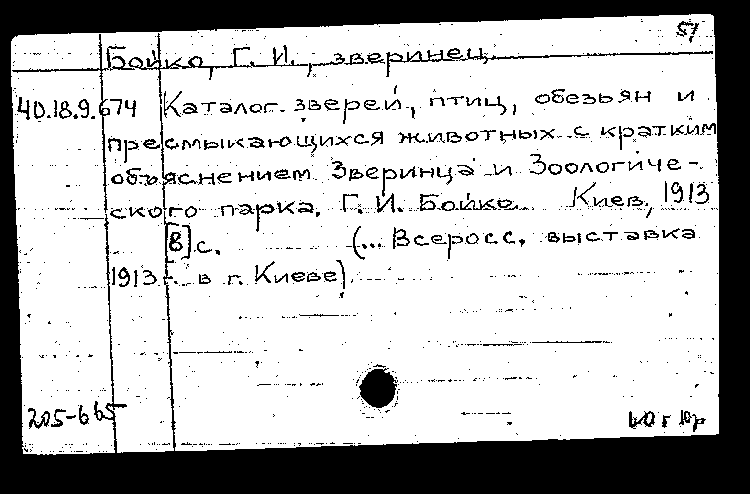 51
Бойко, Г. И., зверинец.
40.18.9.674 Каталог зверей, птиц, обезьян и
пресмыкающихся животных с кратким
объяснением Зверинца и Зоологиче-
ского парка. Г. И. Бойко. Киев, 1913
[8] с. (... Всеросс. выставка
1913 г. в г. Киеве).
205-665